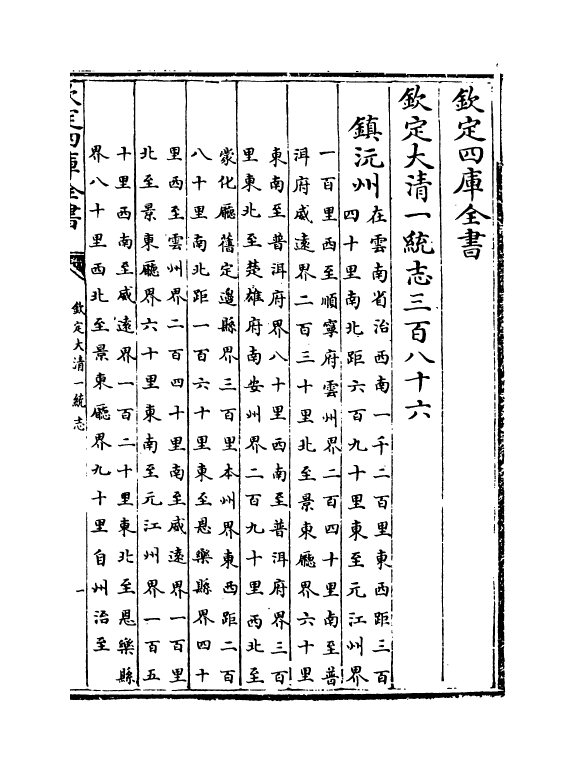 欽定四庫全書
欽定大清一統志三百八十六
鎮沅州
在雲南省治西南一千二百里東西距三百
四十里南北距六百九十里東至元江州界
一百里西至順寧府雲州界二百四十里南至普
洱府威遠界二百三十里北至景東廳界六十里
東南至普洱府界八十里西南至普洱府界三百
里東北至楚雄府南安州界二百九十里西北至
蒙化廳舊定邊縣界三百里本州界東西距二百
八十里南北距一百六十里東至恩樂縣界四十
里西至雲州界二百四十里南至威遠界一百里
北至景東廳界六十里東南至元江州界一百五
十里西南至威遠界一百二十里東北至恩樂縣
界八十里西北至景東廳界九十里自州治至
欽定四庫全書
欽定大清一統志
一